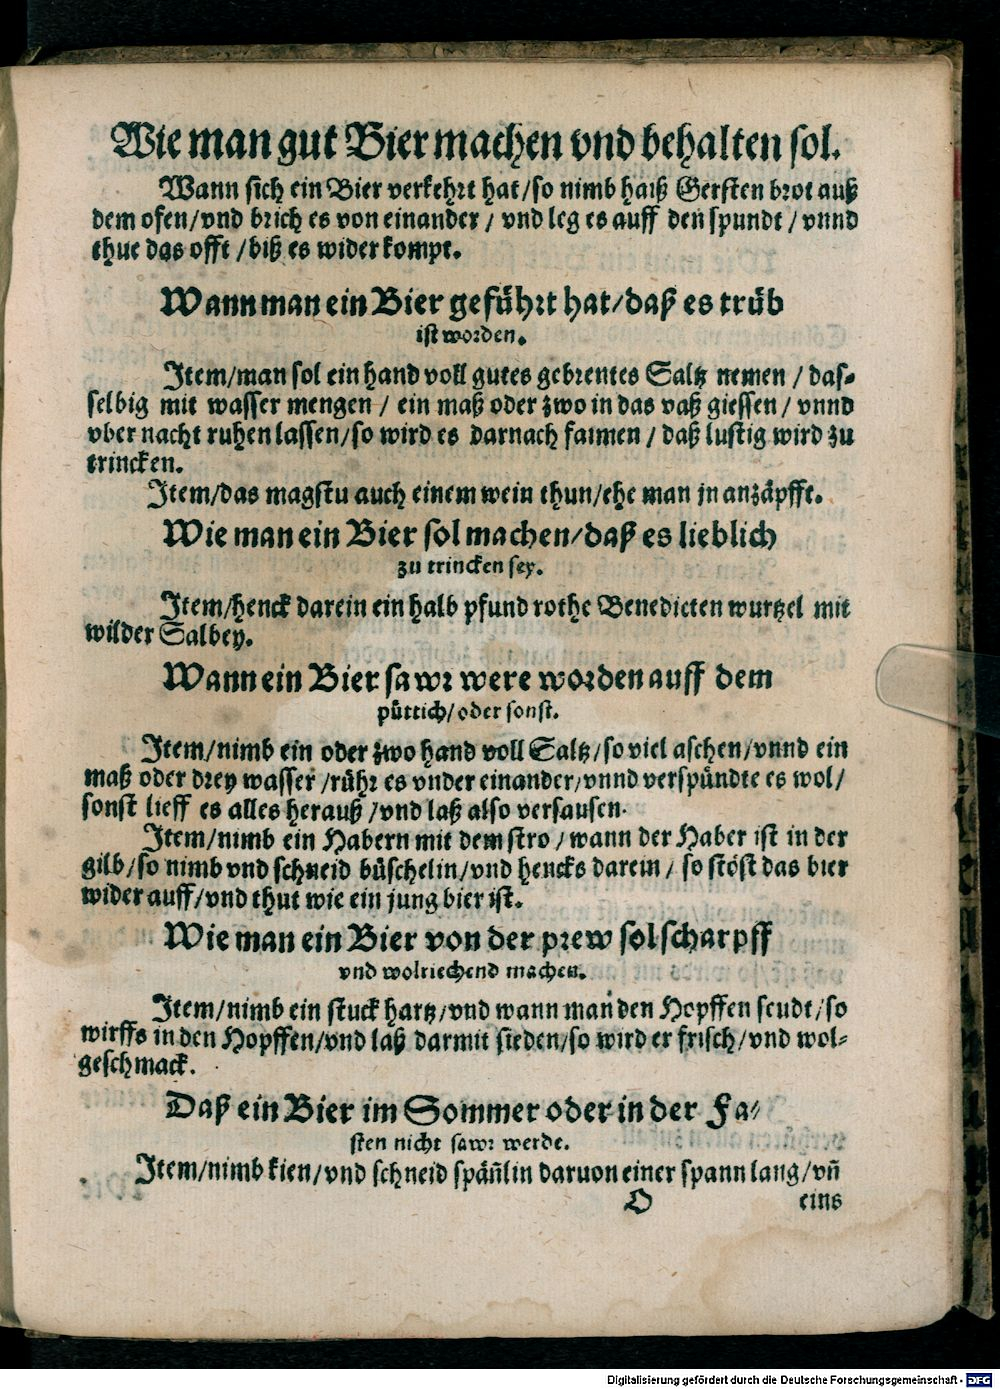 Wie man gut Bier machen vnd behalten sol.
Wann sich ein Bier verkehrt hat/so nimb haiß Gersten brot auß
dem ofen/vnd brich es von einander/ vnd leg es auff den spundt/vnnd
thue das offt/biß es wider kompt.
Wann man ein Bier geführt hat/daß es trüb
ist worden.
Item/man sol ein hand voll gutes gebrentes Saltz nemen/ das-
selbig mit wasser mengen/ ein maß oder zwo in das vaß giessen/ vnnd
vber nacht ruhen lassen/so wird es darnach faimen/ daß lustig wird zu
trincken.
Item/das magstu auch einem wein thun/ehe man jn anzäpfft.
Wie man ein Bier sol machen/daß es lieblich
zu trincken sey.
Item/henck darein ein halb pfund rothe Benedicten wurtzel mit
wilder Salbey.
Wann ein Bier sawr were worden auff dem
püttich/oder sonst.
Item/nimb ein oder zwo hand voll Saltz/so viel aschen/vnnd ein
maß oder drey wasser/rühr es vnder einander/vnnd verspündte es wol/
sonst lieff es alles herauß/vnd laß also versausen.
Item/nimb ein Habern mit dem stro/wann der Haber ist in der
gilb/so nimb vnd schneid büschelin/vnd hencks darein/ so stöst das bier
wider auff/vnd thut wie ein jung bier ist.
Wie man ein Bier von der prew sol scharpff
vnd wolriechend machen.
Item/nimb ein stuck hartz/vnd wann man den Hopffen seudt/so
wirffs in den Hopffen/vnd laß darmit sieden/so wird er frisch/vnd wol-
geschmack.
Daß ein Bier im Sommer oder in der Fa-
sten nicht sawr werde.
Item/nimb kien/vnd schneid spän̄lin daruon einer spann lang/vn̄
O eins
Digitalisierung gefördert durch die Deutsche Forschungsgemeinschaft - DFG